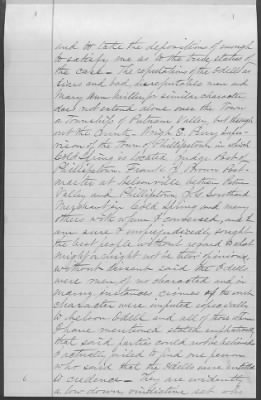 and to take the depositions of enough
to satisfy me as to the true status of
the case — The reputation of the Odells as
liars and bad, disreputable men and
Mary Ann Miller for similar character
does not extend alone over the Town
a Township of Putnam Valley, but through
out the County. Wright E. Perry Super-
visor of the Town of Phillipstown in which
Cold Spring is located, Judge
Phillipstown. Frank Brown Post-
master at Nelsonville between Putnam
Valley and Phillipstown,
Merchant in Cold Spring and many
others with whom I conversed, and I
am sure I unprejudicedly, sought
the best people without regard to what
might or might not be their opinions,
without dissent said the Odells
were men of no character and in
many instances crimes of
character were imputed especially
to Nelson Odell and all of those whom
I have mentioned stated emphatically
that said parties could not be believed
I actually failed to find one person
who said that the Odells were entitled
to credence — They are evidently
a low down, vindictive set who
6